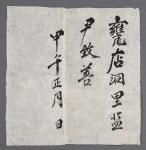 甕店洞里監
尹致善
甲午正月 日